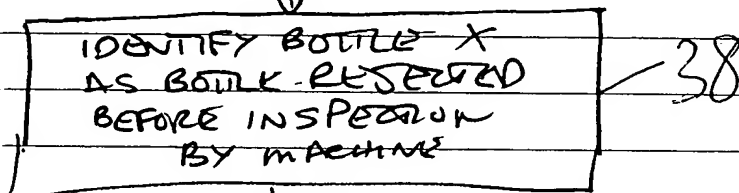 IDENTIFY BOTTLE X
AS BOTTLE REJECTED
BEFORE INSPECTION
BY MACHINE
38